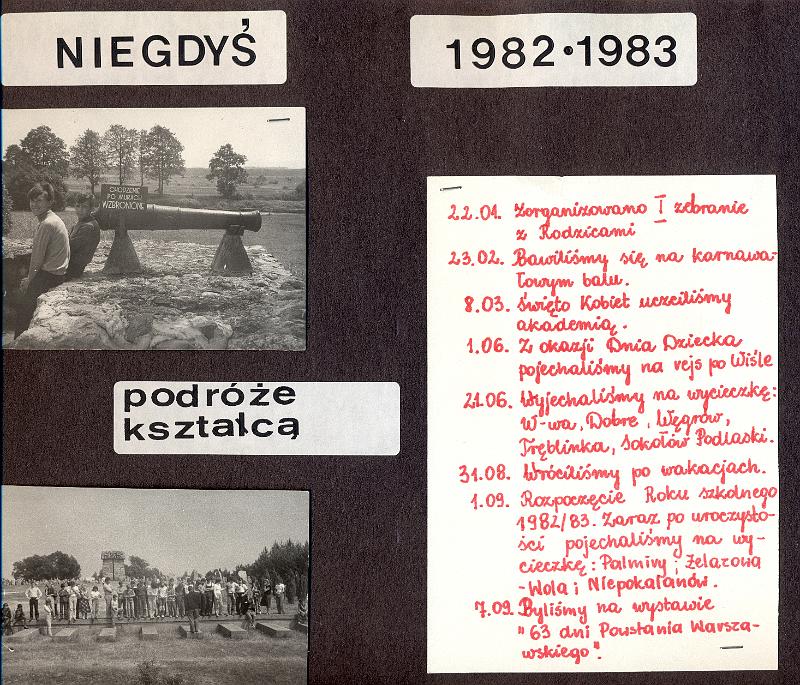 NIEGDYŚ
1982·1983
CHODZENIE
PO MURACH
WZBRONIONE
podróże
kształcą
22.01. Zorganizowano I zebranie
z Rodzicami
23.02. Bawiliśmy się na karnawa-
łowym balu.
8.03. Święto Kobiet uczciliśmy
akademią.
1.06. Z okazji Dnia Dziecka
pojechaliśmy na rejs po Wiśle
21.06. Wyjechaliśmy na wycieczkę:
W-wa, Dobre, Węgrów,
Tręblinka, Sokołów Podlaski.
31.08. Wróciliśmy po wakacjach.
1.09. Rozpoczęcie Roku szkolnego
1982/83. Zaraz po uroczysto-
ści pojechaliśmy na wy-
cieczkę: Palmiry; Żelazowa
-Wola i Niepokalanów.
7.09. Byliśmy na wystawie
"63 dni Powstania Warsza-
wskiego".